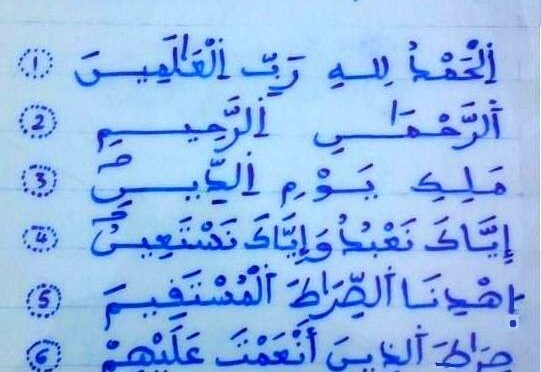 اَلْحَمْدُ لِلهِ رَبِّ اِلْعَٰلَمِينَ 1
اَلرَّحْمَٰنِ اِلرَّحِيمِ 2
مَلِكِ يَوْمِ اِلدِّينِ 3
إِيَّاكَ نَعْبُدُ وَإِيَّاكَ نَسْتَعِينُ 4
اِهْدِنَا اَلصِّرَٰطَ اَلْمُسْتَقِيمَ 5
صِرَٰطَ اَلذِينَ أَنْعَمْتَ عَلَيْهِمْ 6